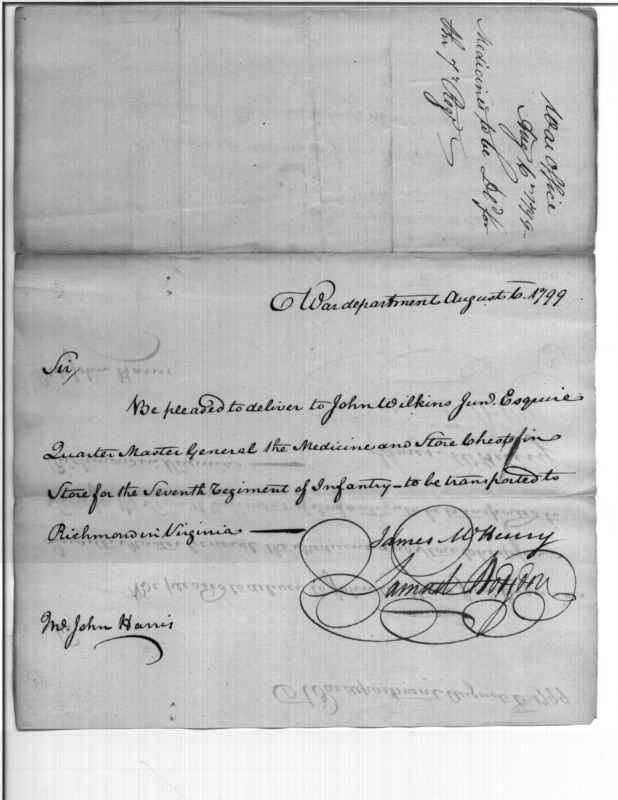 War Office
Aug 6th 1799
Medicines to be Dld for
the 7th Regt
War department August 6. 1799
Sir,
Be pleased to deliver to John Wilkins Junr. Esquire
Quarter Master General the Medicine and Store Chest in
Store for the Seventh Regiment of Infantry – to be transported to
Richmond in Virginia —
James McHenry
Samuel Hodgdon
Mr. John Harris